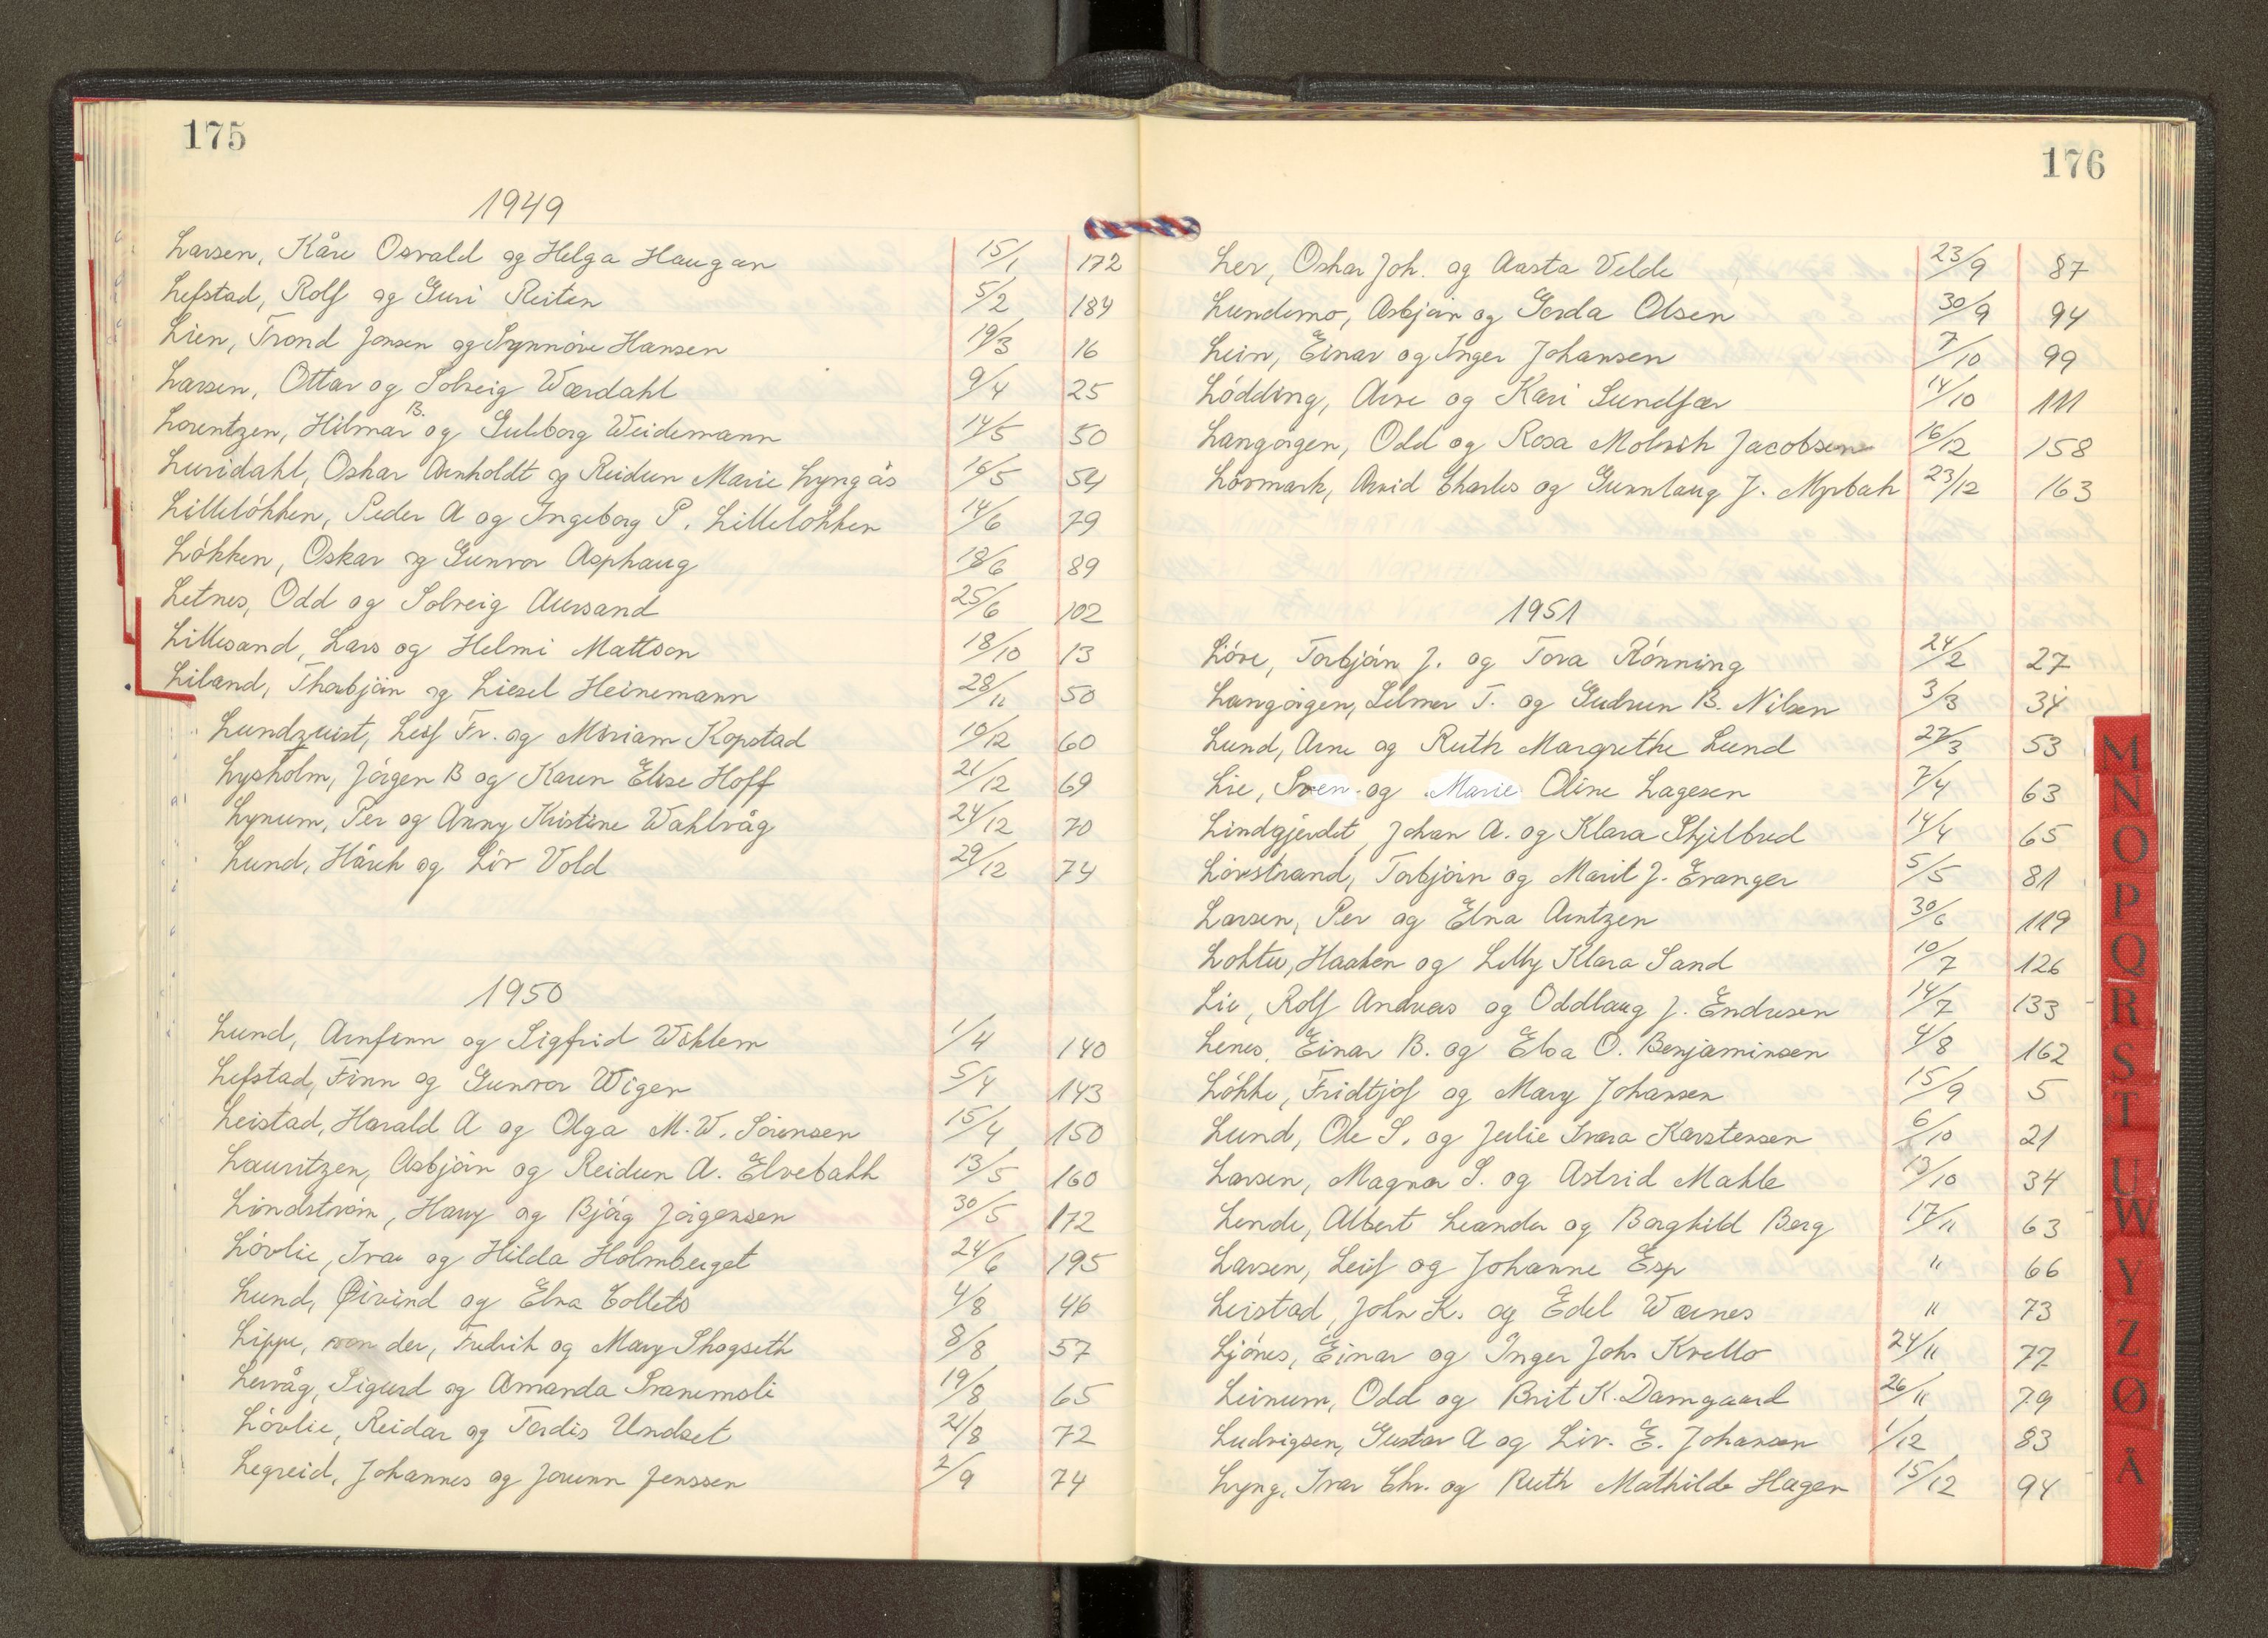 175
1949
Larsen, Kåre Osvald og Helga Haugan 15/1 172
Lefstad, Rolf og Guri Reiten 5/2 184
Lien, Trond Jensen og Synnøve Hansen 19/3 16
Larsen, Ottar og Solveig Wærdahl 9/4 25
Lorentzen, Hilmar B. og Gulborg Weidemann 14/5 50
Luridahl, Oskar Arnholdt og Reidun Marie Lyngås 16/5 54
Lilleløkken, Peder A og Ingeborg P. Lilleløkken 14/6 79
Løkken, Oskar og Gunvor Asphaug 18/6 89
Letnes, Odd og Solveig Aursand 25/6 102
Lillesand, Lars og Helmi Mattson 18/10 13
Liland, Thorbjørn og Liesel Heinemann 28/11 50
Lundquist, Leif Fr. og Miriam Kopstad 10/12 60
Lysholm, Jørgen B og Karen Elise Hoff 21/12 69
Lynum, Per og Anny Kristine Wahlvåg 24/12 70
Lund, Hårek og Liv Vold 29/12 74
1950
Lund, Arnfinn og Sigfrid Woklem 1/4 140
Lefstad, Finn og Gunvor Wigen 5/4 143
Leistad, Harald A og Olga M.W. Sørensen 15/4 150
Lauritzen, Asbjørn og Reidun A. Elvebakk 13/5 160
Lindstrøm, Harry og Bjørg Jørgensen 30/5 172
Løvlie, Ivar og Hilda Holmberget 24/6 195
Lund, Øivind og Elna Collets 4/8 46
Lippe, von der, Fredrik og Mary Skogseth 8/8 57
Lervåg, Sigurd og Amanda Svanemsli 19/8 65
Løvlie, Reidar og Tordis Undset 21/8 72
Legreid, Johannes og Jorunn Jenssen 2/9 74
176
Ler, Oskar Joh. og Aasta Velde 23/9 87
Lundemo, Asbjørn og Gerda Olsen 30/9 94
Lein, Einar og Inger Johansen 7/10 99
Lødding, Arne og Kari Sundfær 14/10 111
Langørgen, Odd og Rosa Molvik Jacobsen 16/12 158
Løvmark, Arvid Charles og Gunnlaug J. Myrbak 23/12 163
1951
Löve, Torbjørn J. og Tora Rønning 24/2 27
Langørgen, Selmer T. og Gudrun B. Nilsen 3/3 34
Lund, Arne og Ruth Margrethe Lund 27/3 53
Lie, Sven og Marie Oline Lagesen 7/4 63
Lindgjerdet, Johan A. og Klara Skjelbred 14/4 65
Løvstrand, Torbjørn og Marit J. Evanger 5/5 81
Larsen, Per og Elna Arntzen 30/6 119
Loktu, Haaken og Lilly Klara Sand 10/7 126
Lie, Rolf Andreas og Oddlaug J. Endresen 14/7 133
Lenes, Einar B. og Elsa O. Benjaminsen 4/8 162
Løkke, Fridtjof og Mary Johansen 15/9 5
Lund, Ole S. og Julie Ivara Karstensen 6/10 21
Larsen, Magnar S. og Astrid Mahle 13/10 34
Lende, Albert Leander og Borghild Berg 17/11 63
Larsen, Leif og Johanne Esp " 66
Leistad, John K. og Edel Wærnes " 73
Ljønes, Einar og Inger Joh. Krello 24/11 77
Leinum, Odd og Brit K. Damgaard 26/11 79
Ludvigsen, Gustav A og Liv. E. Johansen 1/12 83
Lyng, Ivar Chr. og Ruth Mathilde Hagen 15/12 94
M
N
O
P
Q
R
S
T
U
W
Y
Z
Ø
Å